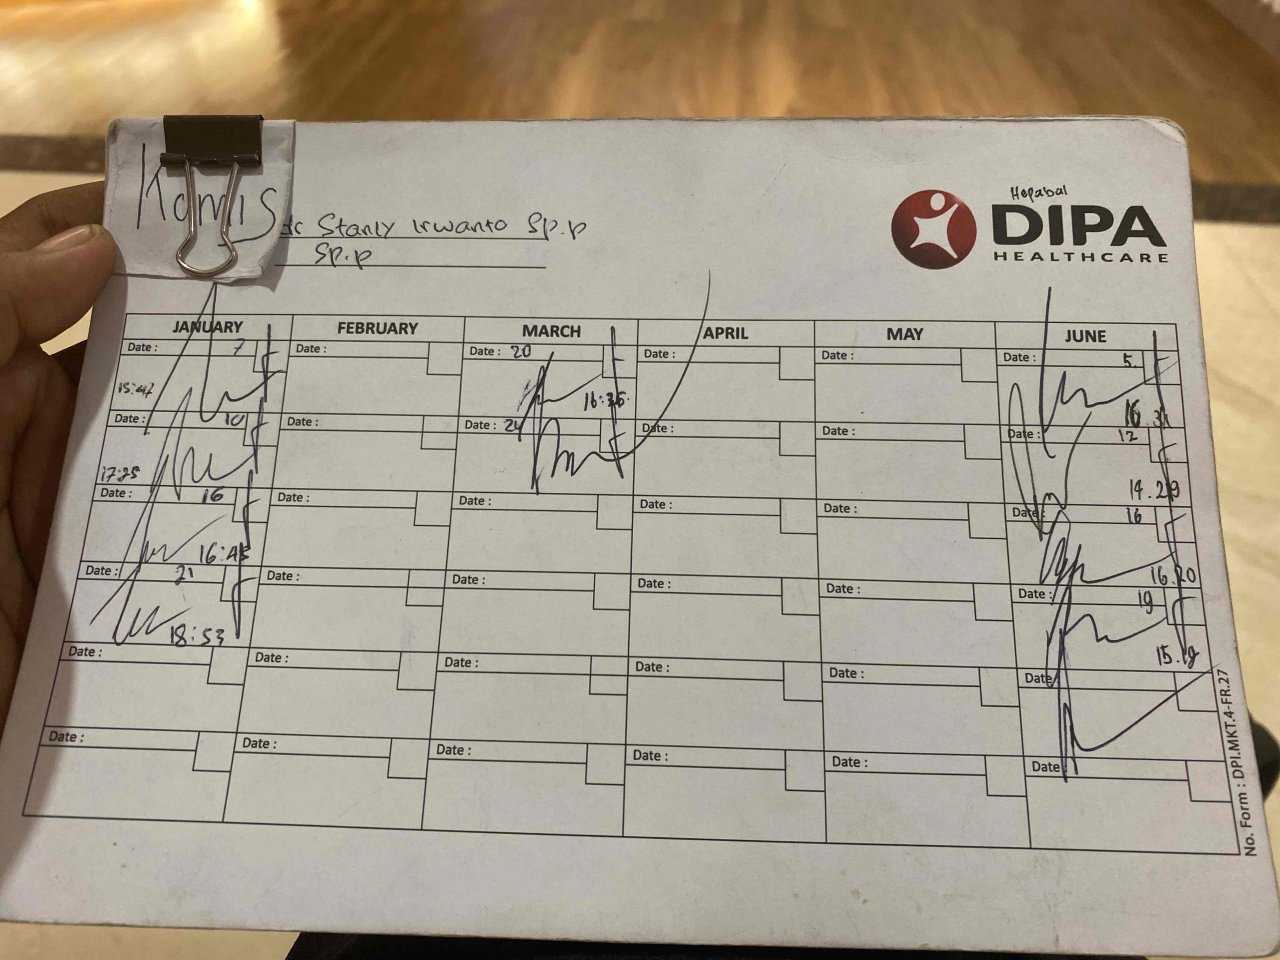 Kamis
dr Stanly Irwanto Sp.p
Sp.p
Hepabal
DIPA
HEALTHCARE
JANUARY FEBRUARY MARCH APRIL MAY JUNE
Date : 7 Date : Date : 20 Date : Date : Date : 5.
15:47 16:36
Date : 10 Date : Date : 24 Date : Date : Date : 12
17:25 14.29
Date : 16 Date : Date : Date : Date : Date : 16
16:45 16.20
Date : 21 Date : Date : Date : Date : Date : 19
18:53
Date : Date : Date : Date : Date : Date
Date : Date : Date : Date : Date : Date
No. Form : DPI.MKT.4-FR.27